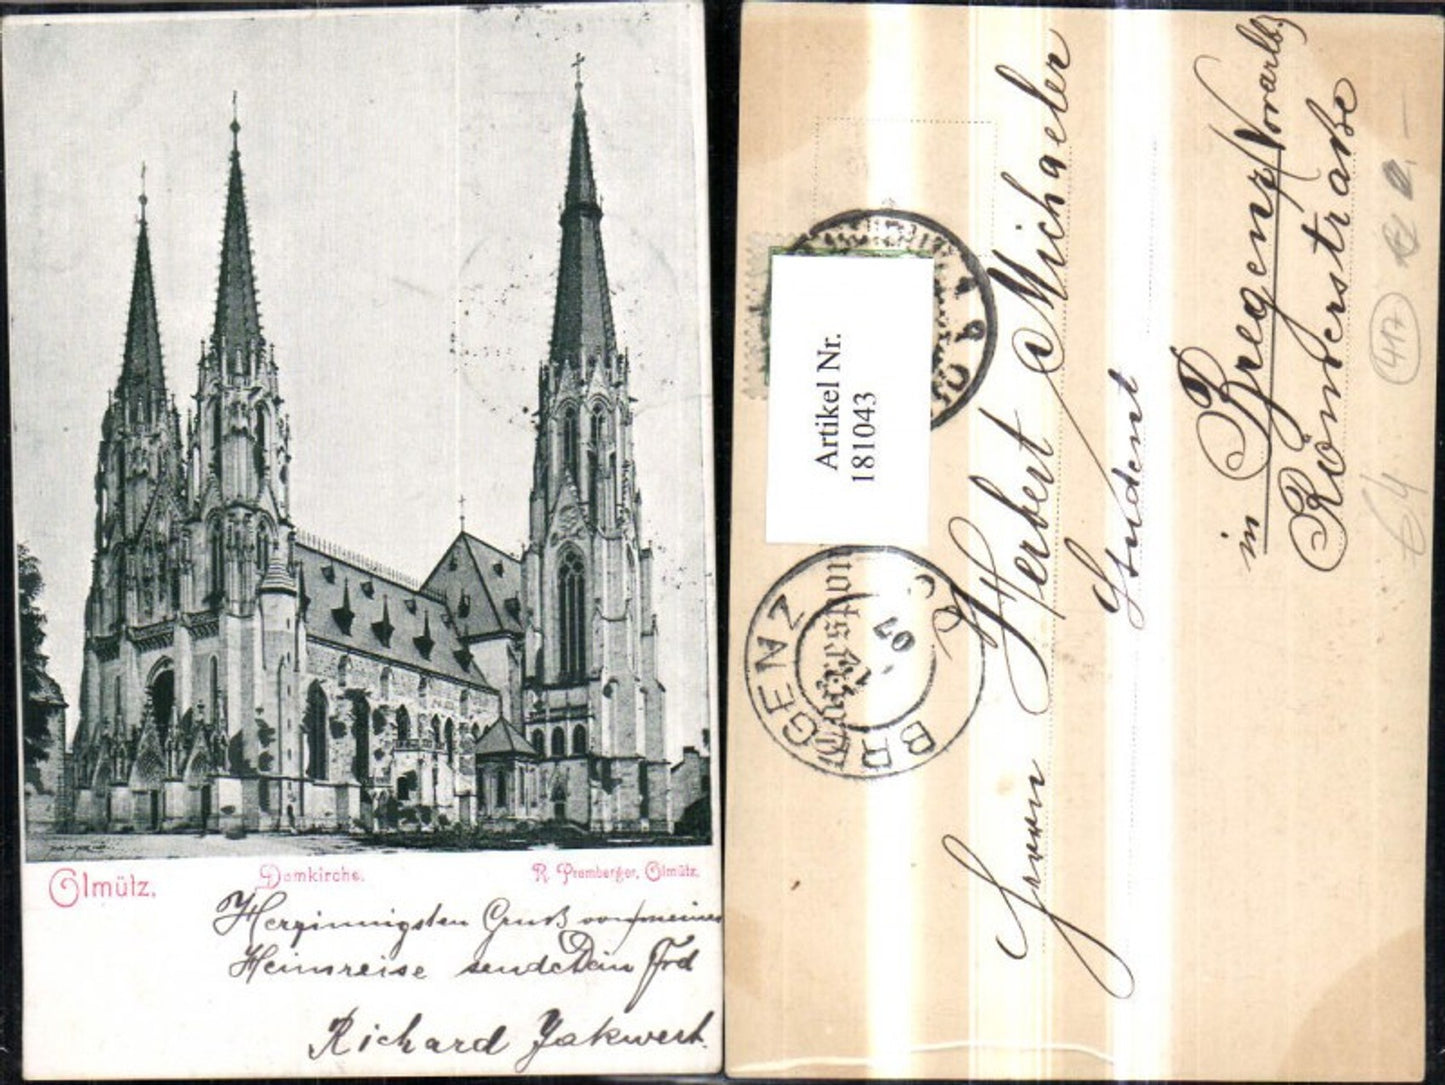 Olmütz.
Domkirche.
R. Promberger, Olmütz.
Herzinnigsten Gruß von meiner
Heimreise sendet Dein Frd
Richard Jakwerth
Artikel Nr.
181043
BREGENZ
07
Herrn Herbert Michaeler
Student
in Bregenz Vorarlbg
Römerstraße
417
64